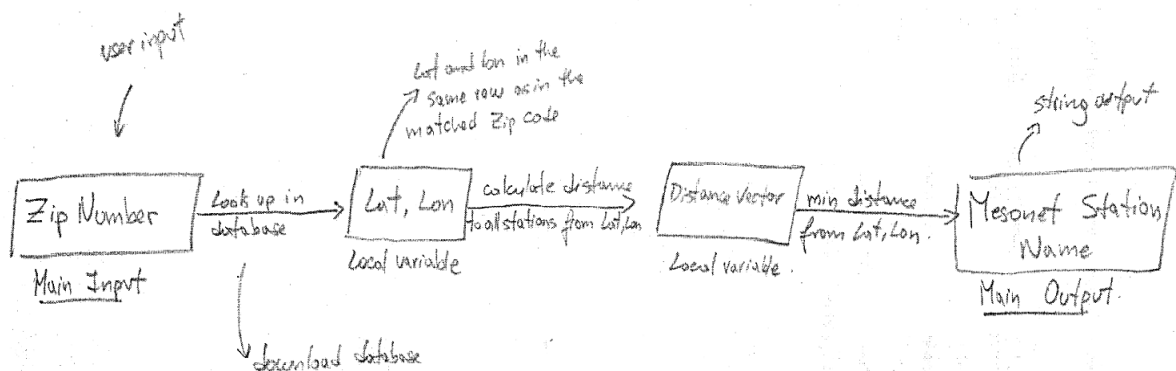 user input
Lat and Lon in the
same row as in the
matched Zip code
string output
Zip Number
Look up in
database
Lat, Lon
calculate distance
to all stations from Lat, Lon
Distance Vector
min distance
from Lat, Lon.
Mesonet Station
Name
Main Input
Local variable
Local variable.
Main Output.
download database